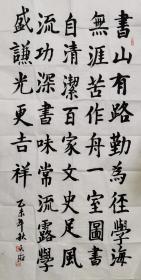 書山有路勤為徑學海
無涯苦作舟一室圖書
自清潔百家文史足風
流功深書味常流露學
盛謙光更吉祥
乙未年秋